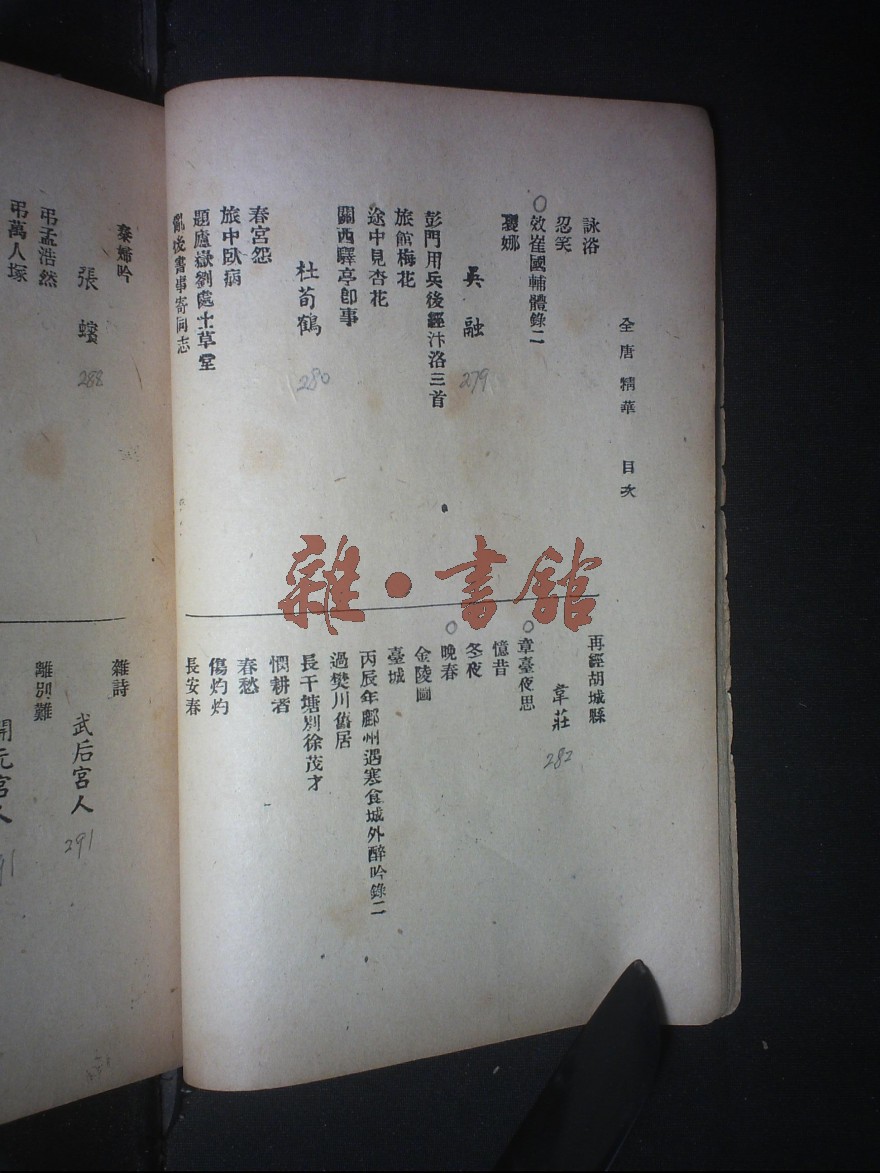 全唐精華 目次
詠浴
忍笑
效崔國輔體錄二
裊娜
吳融
279
彭門用兵後經汴洛三首
旅館梅花
途中見杏花
關西驛亭卽事
杜荀鶴
280
春宮怨
旅中臥病
題廬嶽劉處士草堂
亂後書事寄同志
再經胡城縣
韋莊
282
章臺夜思
憶昔
冬夜
晚春
金陵圖
臺城
丙辰年鄜州遇寒食城外醉吟錄二
過樊川舊居
長干塘別徐茂才
憫耕者
春愁
傷灼灼
長安春
秦婦吟
張蠙
288
弔孟浩然
弔萬人塚
雜詩
武后宮人
291
離別難
開元宮人
雜·書館